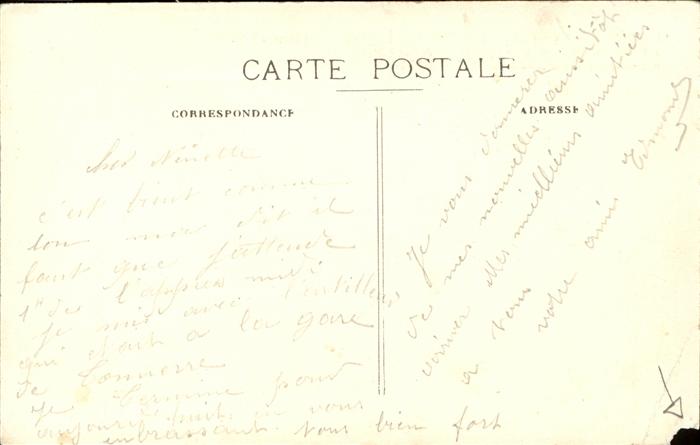 CARTE POSTALE
CORRESPONDANCE
ADRESSE
cher Ninette
c'est bient comme
ton mot dit il
faut que j'attende
1h de l'appres midi
je suis avec l'artilleur
qui etait a la gare
de Connerre
Je termine pour
aujourd'huit en vous
enbrassant tous bien fort
Je vous donnerez
de mes nouvelles aussitôt
arriver Mes meilleurs amitiées
a tous
votre ami Edmond